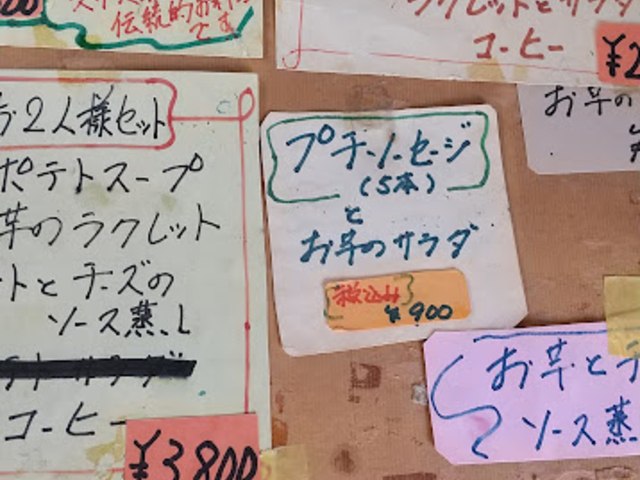 伝統的お
です
ラクレットとサラダ
コーヒー
¥2
お2人様セット
ポテトスープ
芋のラクレット
トとチーズの
ソース蒸し
コーヒー
¥3,800
プチソーセージ
(5本)
と
お芋のサラダ
税込み
¥900
お芋の
お芋とチ
ソース蒸